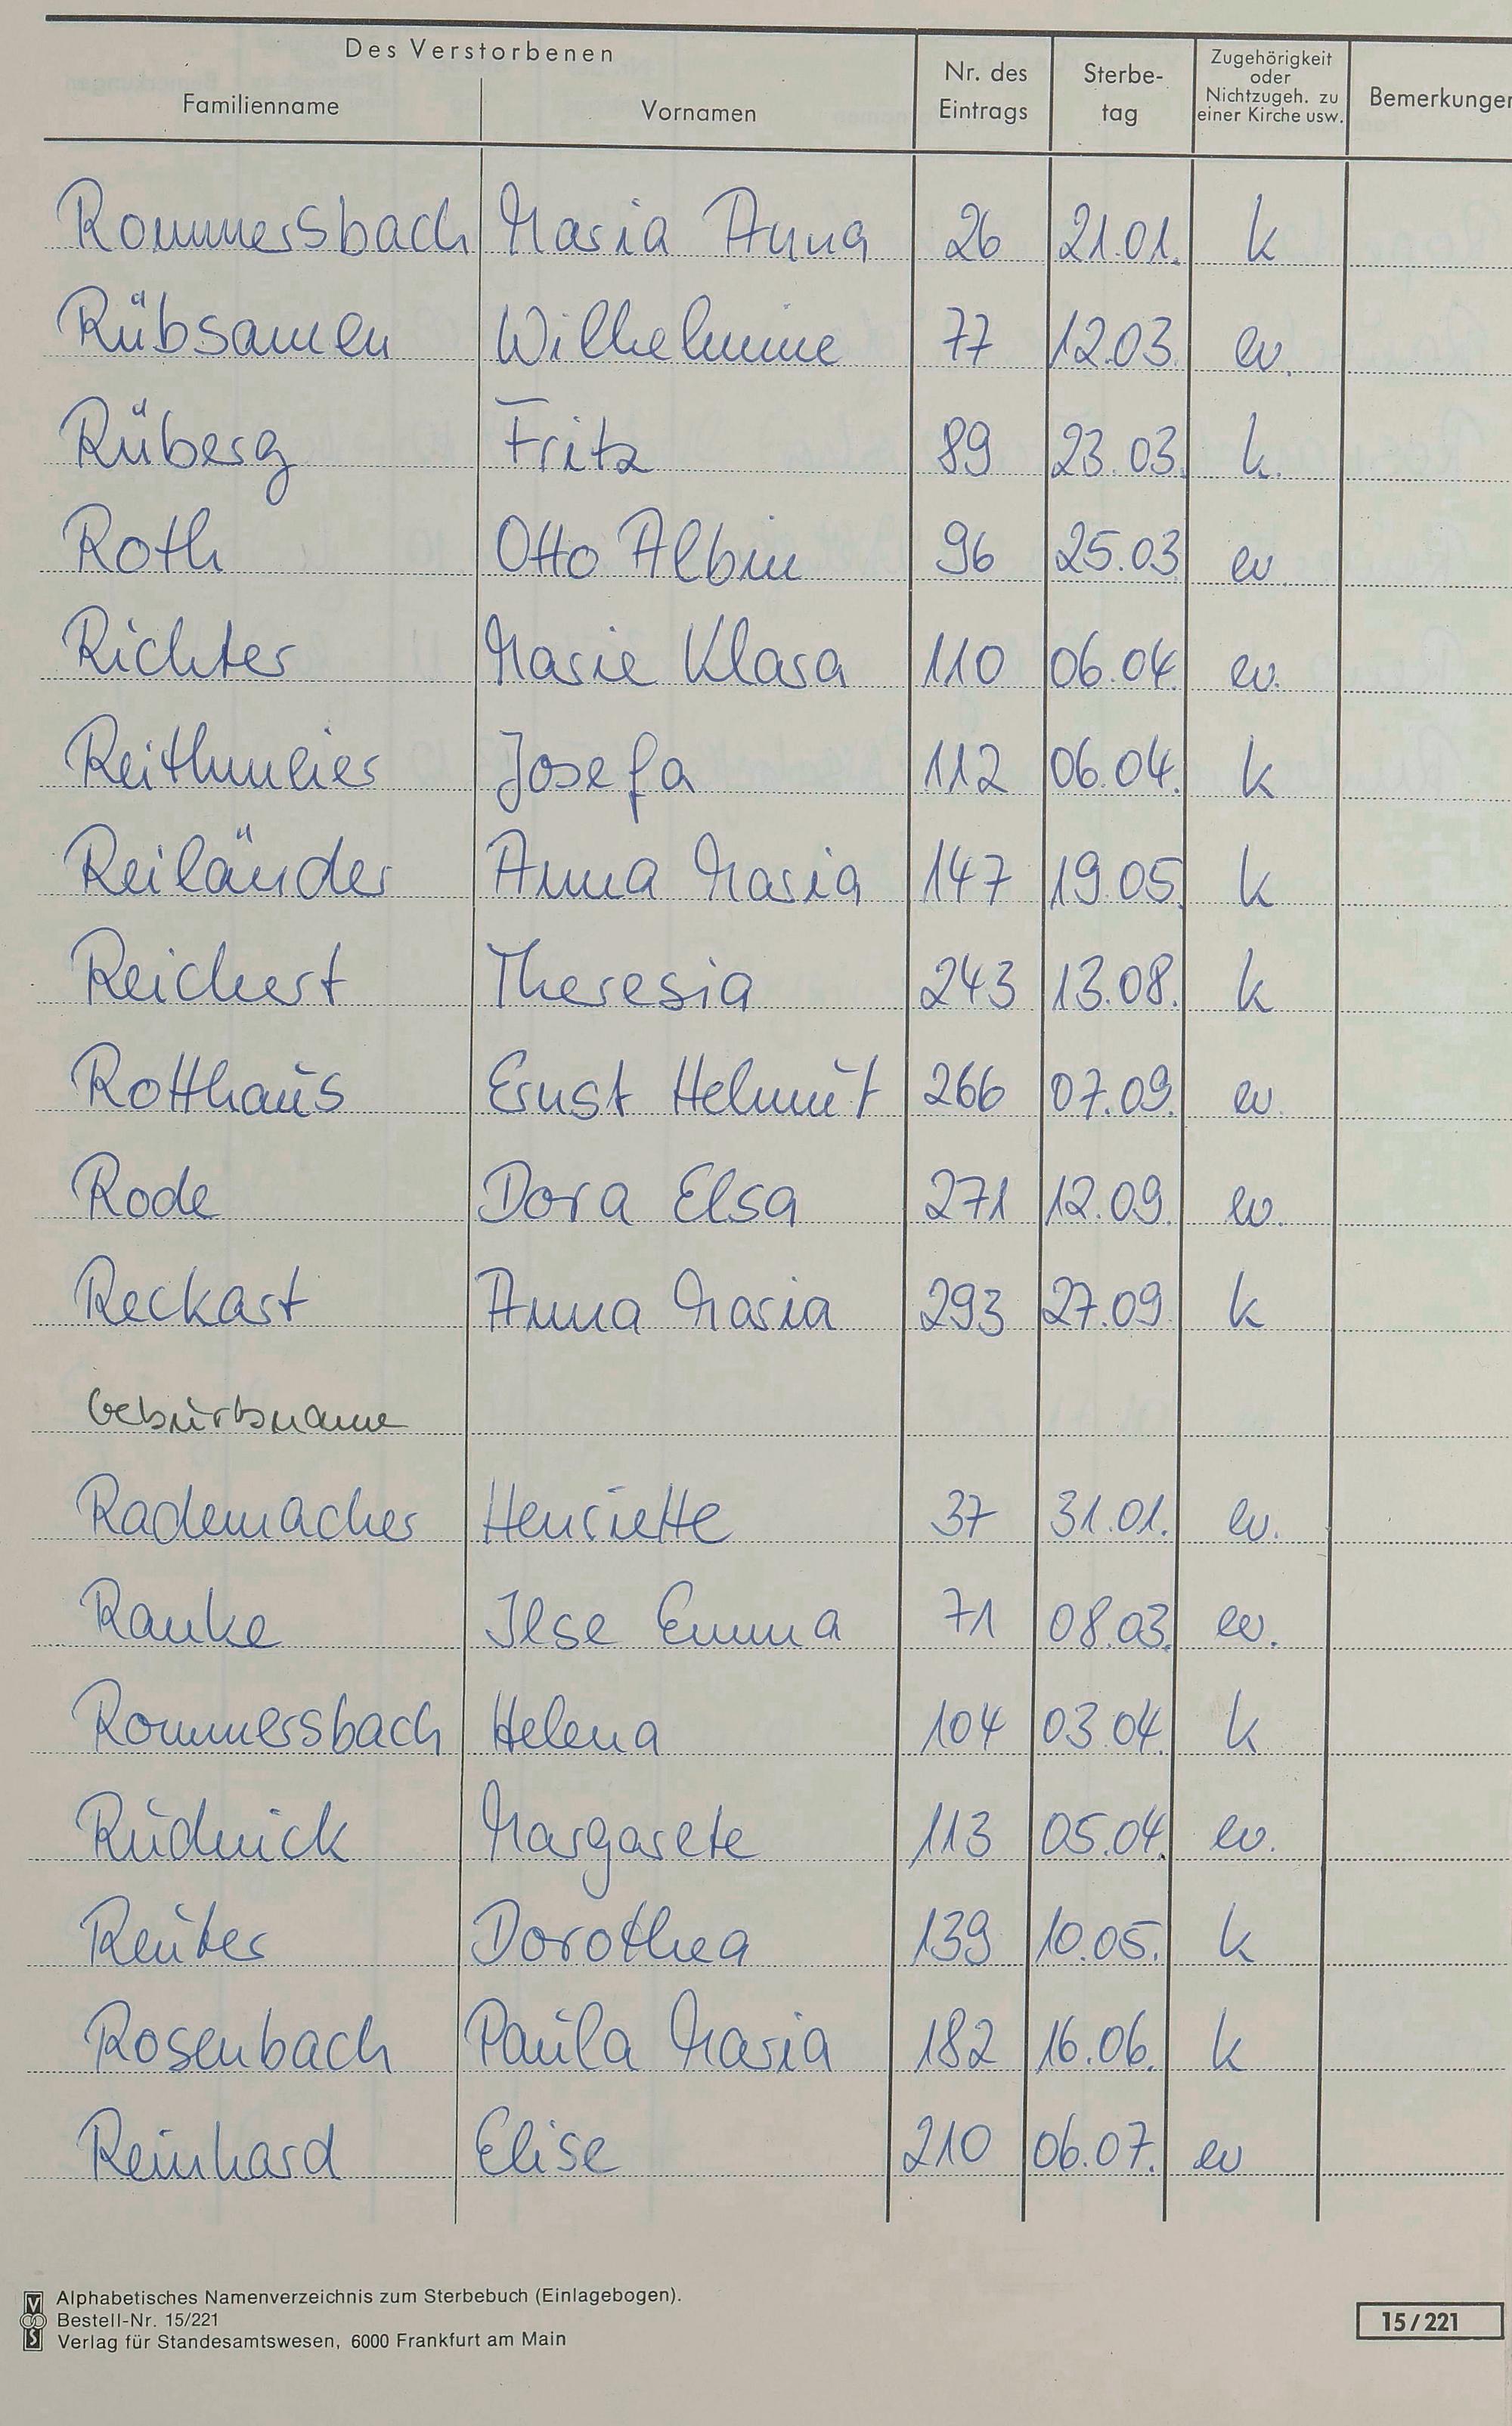 Des Verstorbenen
Familienname Vornamen Nr. des Eintrags Sterbe- tag Zugehörigkeit oder Nichtzugeh. zu einer Kirche usw. Bemerkungen
Rommersbach Maria Anna 26 21.01. k
Rübsamen Wilhelmine 77 12.03. ev.
Rüberg Fritz 89 23.03. k.
Roth Otto Albin 96 25.03 ev.
Richter Marie Klara 110 06.04. ev.
Reithmeier Josefa 112 06.04. k
Reiländer Anna Maria 147 19.05. k
Reichert Theresia 243 13.08. k
Rotthaus Ernst Helmut 266 07.09. ev.
Rode Dora Elsa 271 12.09. ev.
Reckart Anna Maria 293 27.09. k
Geburtsname
Rademacher Henriette 37 31.01. ev.
Ranke Ilse Emma 71 08.03. ev.
Rommersbach Helena 104 03.04. k
Rudnick Margarete 113 05.04. ev.
Reuter Dorothea 139 10.05. k
Rosenbach Paula Maria 182 16.06. k
Reinhard Elise 210 06.07. ev
Alphabetisches Namenverzeichnis zum Sterbebuch (Einlagebogen).
Bestell-Nr. 15/221
Verlag für Standesamtswesen, 6000 Frankfurt am Main
15/221